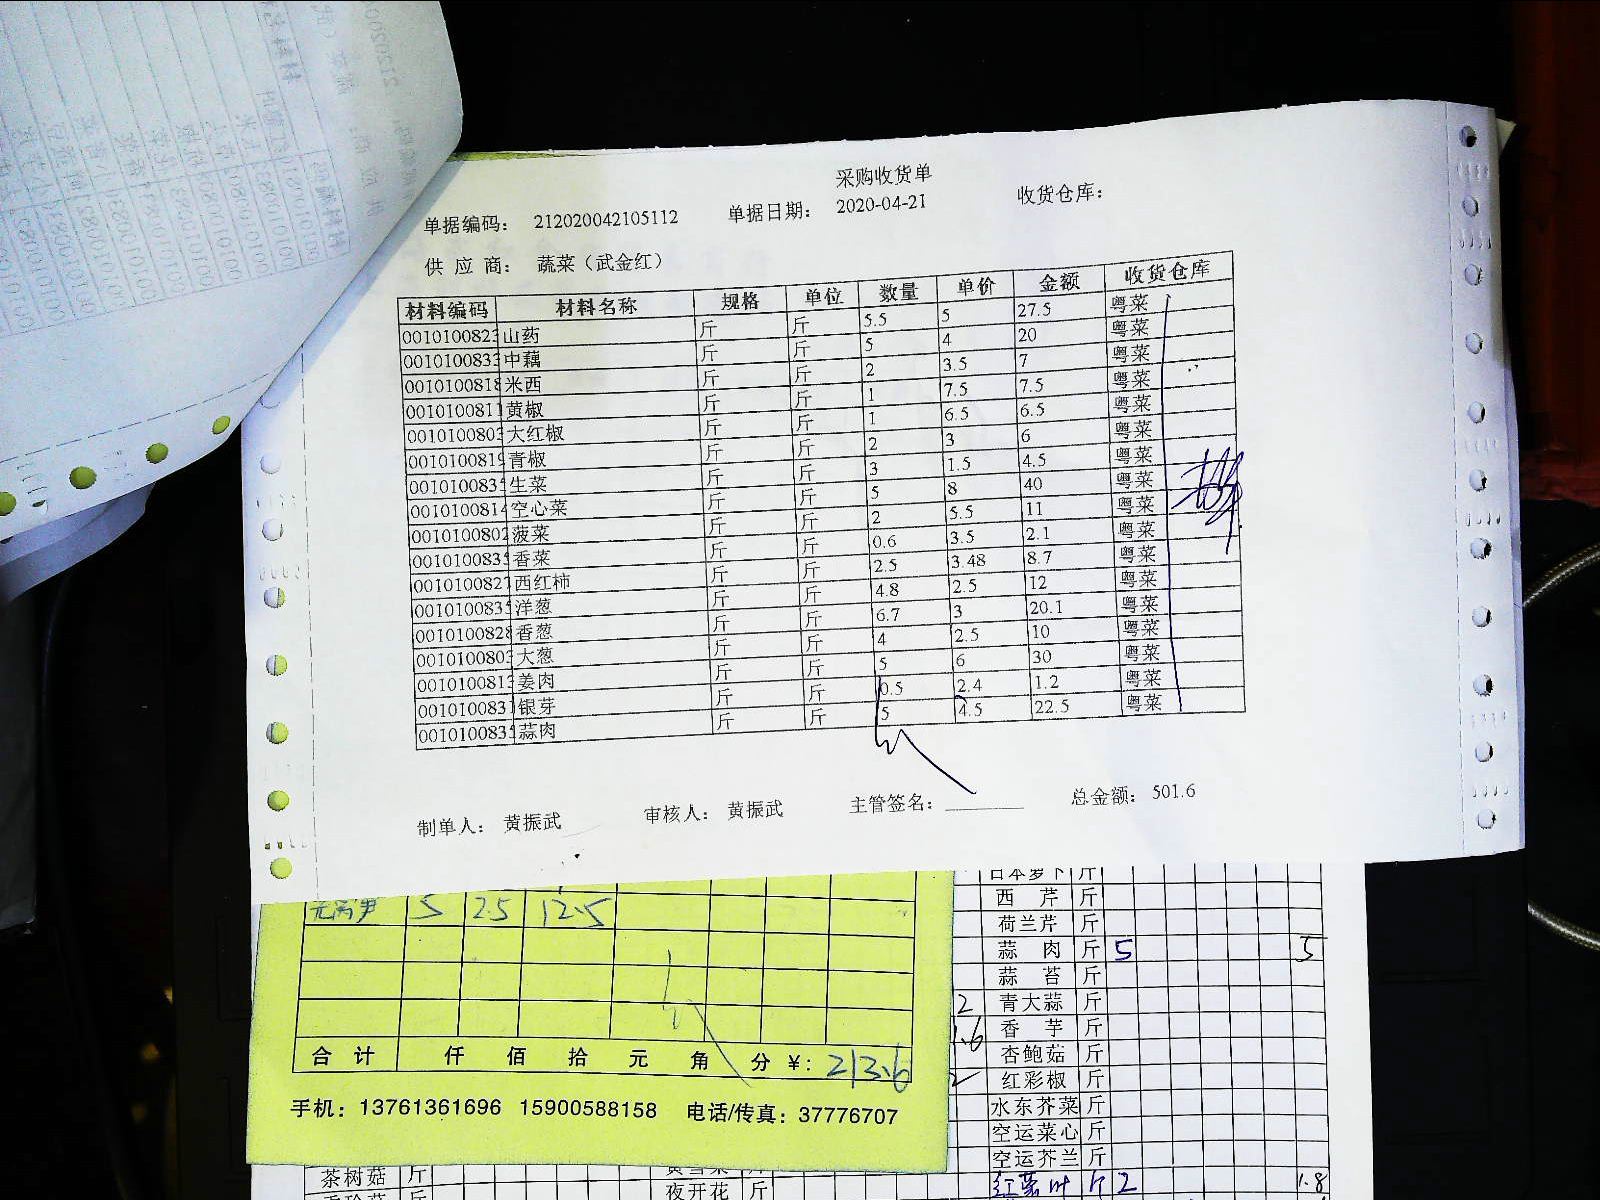 采购收货单
单据编码： 212020042105112 单据日期： 2020-04-21 收货仓库：
供 应 商： 蔬菜（武金红）
材料编码 材料名称 规格 单位 数量 单价 金额 收货仓库
0010100823 山药 斤 斤 5.5 5 27.5 粤菜
0010100833 中藕 斤 斤 5 4 20 粤菜
0010100818 米西 斤 斤 2 3.5 7 粤菜
0010100811 黄椒 斤 斤 1 7.5 7.5 粤菜
0010100803 大红椒 斤 斤 1 6.5 6.5 粤菜
0010100819 青椒 斤 斤 2 3 6 粤菜
001010083 生菜 斤 斤 3 1.5 4.5 粤菜
0010100814 空心菜 斤 斤 5 8 40 粤菜
0010100802 菠菜 斤 斤 2 5.5 11 粤菜
001010083 香菜 斤 斤 0.6 3.5 2.1 粤菜
001010082 西红柿 斤 斤 2.5 3.48 8.7 粤菜
001010083 洋葱 斤 斤 4.8 2.5 12 粤菜
0010100828 香葱 斤 斤 6.7 3 20.1 粤菜
0010100803 大葱 斤 斤 4 2.5 10 粤菜
0010100813 姜肉 斤 斤 5 6 30 粤菜
001010083 银芽 斤 斤 0.5 2.4 1.2 粤菜
001010083 蒜肉 斤 斤 5 4.5 22.5 粤菜
制单人： 黄振武 审核人： 黄振武 主管签名： 总金额： 501.6
5 2.5 12.5
合 计 仟 佰 拾 元 角 分 ￥: 213.6
手机：13761361696 15900588158 电话/传真：37776707
日本萝卜 斤
西 芹 斤
荷兰芹 斤
蒜 肉 斤 5 5
蒜 苔 斤
2 青大蒜 斤
香 芋 斤
杏鲍菇 斤
红彩椒 斤
水东芥菜 斤
空运菜心 斤
空运芥兰 斤
茶树菇 斤
斤 2 1.8
夜开花 斤